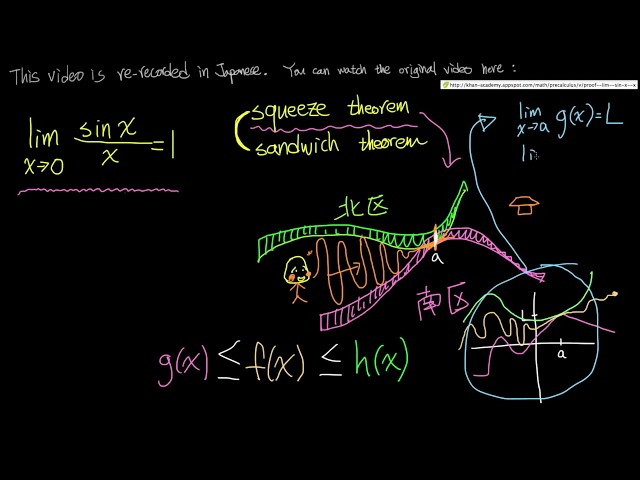 This video is re-recorded in Japanese. You can watch the original video here :
http://khan-academy.appspot.com/math/precalculus/v/proof--lim--sin-x--x
lim x→0 sin x / x = 1
squeeze theorem
sandwich theorem
lim x→a g(x) = L
li
北区
a
南区
g(x) ≤ f(x) ≤ h(x)
L
a